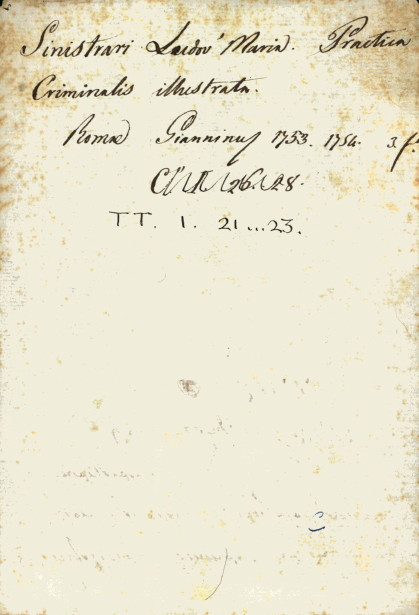 Sinistrari Ludov' Maria. Practica
Criminalis illustrata.
Romae Gianninus 1753. 1754. 3 f.
26. 28.
TT. 1. 21...23.